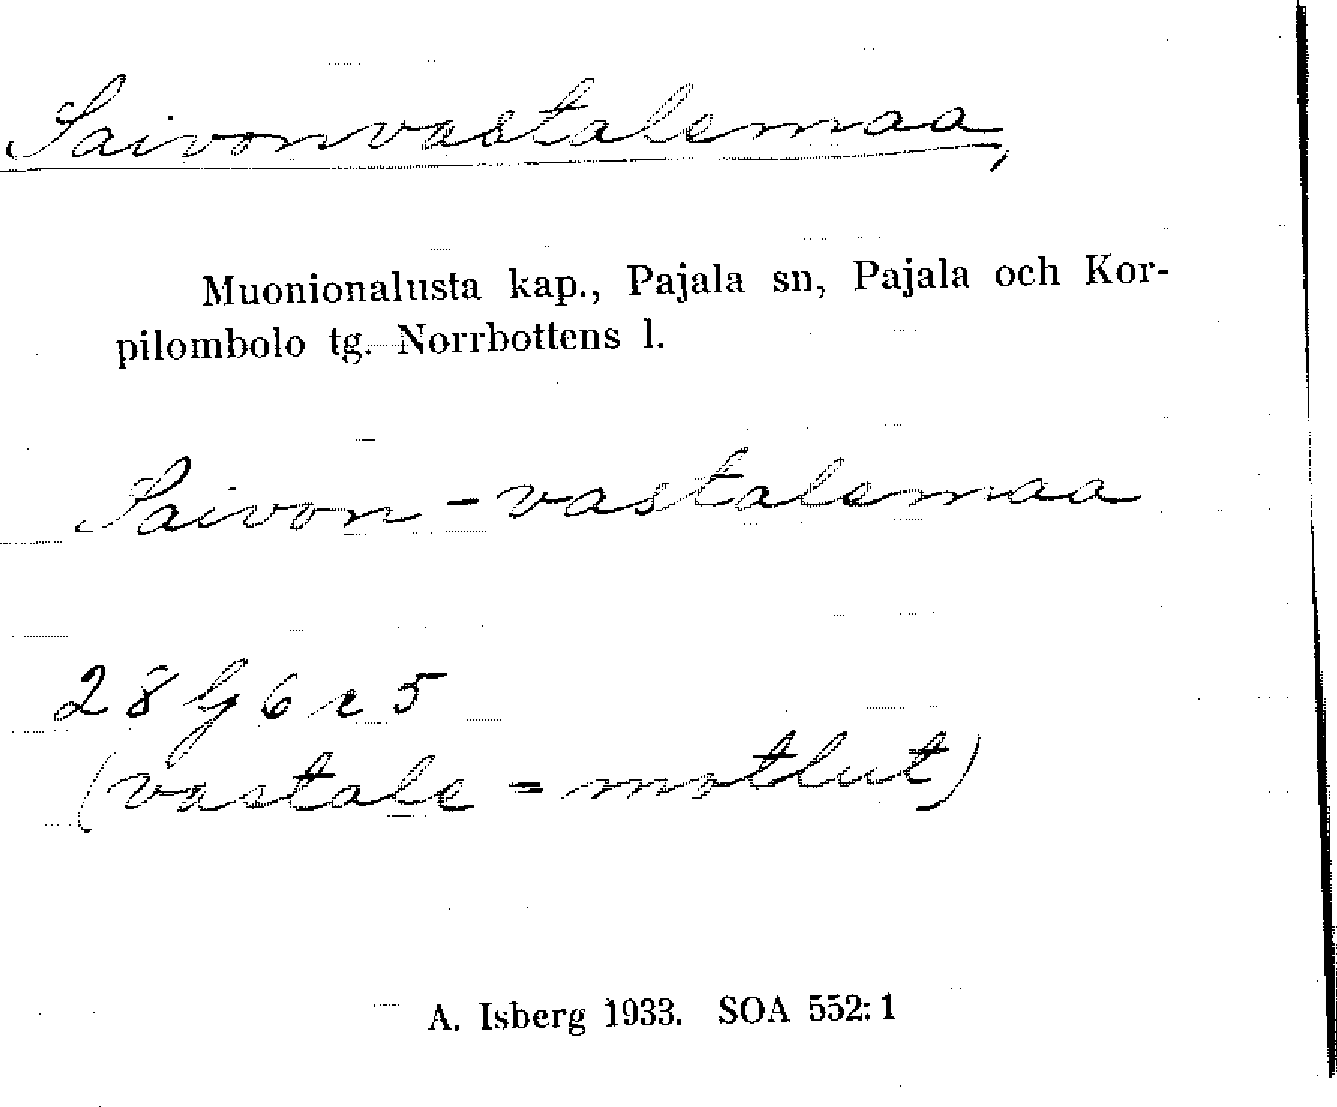 Saivonvastalemaa,
Muonionalusta kap., Pajala sn, Pajala och Kor-
pilombolo tg. Norrbottens l.
Saivon-vastalemaa
28 G 6 c 5
(vastale = motlut)
A. Isberg 1933. SOA 552:1